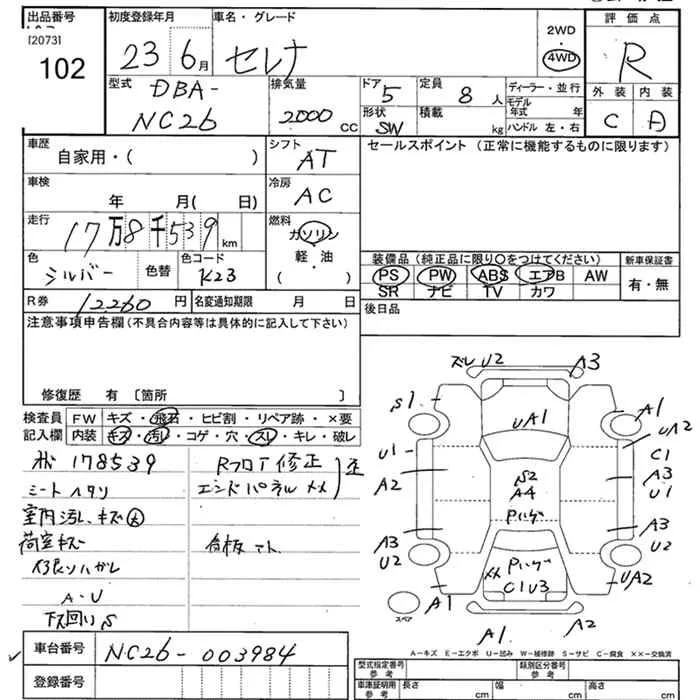 出品番号 初度登録年月 車名・グレード 評価点
[2073]
102
23 6月 セレナ
2WD
4WD
R
型式 DBA-
NC26
排気量
2000 CC
ドア 5
形状 SW
定員 8 人
積載 kg
ディーラー・並行
モデル年式 年
ハンドル 左・右
外装 内装
C D
車歴
自家用・( )
シフト
AT
セールスポイント (正常に機能するものに限ります)
車検
年 月( 日)
冷房
AC
走行
17万8千539km
燃料
ガソリン
軽・油
( )
色
シルバー
色替
色コード
K23
装備品 (純正品に限り○をつけてください) 新車保証書
PS PW ABS エアB AW 有・無
SR ナビ TV カワ
R券 12,260円 名変通知期限 月 日
後日品
注意事項申告欄(不具合内容等は具体的に記入して下さい)
修復歴 有 〔箇所 〕
検査員 FW キズ・飛石・ヒビ割・リペア跡・×要
記入欄 内装 キズ・汚レ・コゲ・穴・スレ・キレ・破レ
178539
シートヘタリ
室内汚レ、キズ大
荷室キズ
ハガレ
A・U
下回りS
RフロT修正
エンドパネルメメ
ズレU2 A3
S1 A1
UA1 UA2
U1 C1
A2 A3
U1
S2
A4
Pハゲ
A3 A3
U2 U2
Pハゲ
メメ C1U3
UA2
A1
スペア
A1 A2
車台番号 NC26-003984
登録番号
A-キズ E-エクボ U-凹み W-補修跡 S-サビ C-腐食 ××-交換済
型式指定番号 参考 類別区分番号 参考
車庫証明用 参考 長さ cm 幅 cm 高さ cm